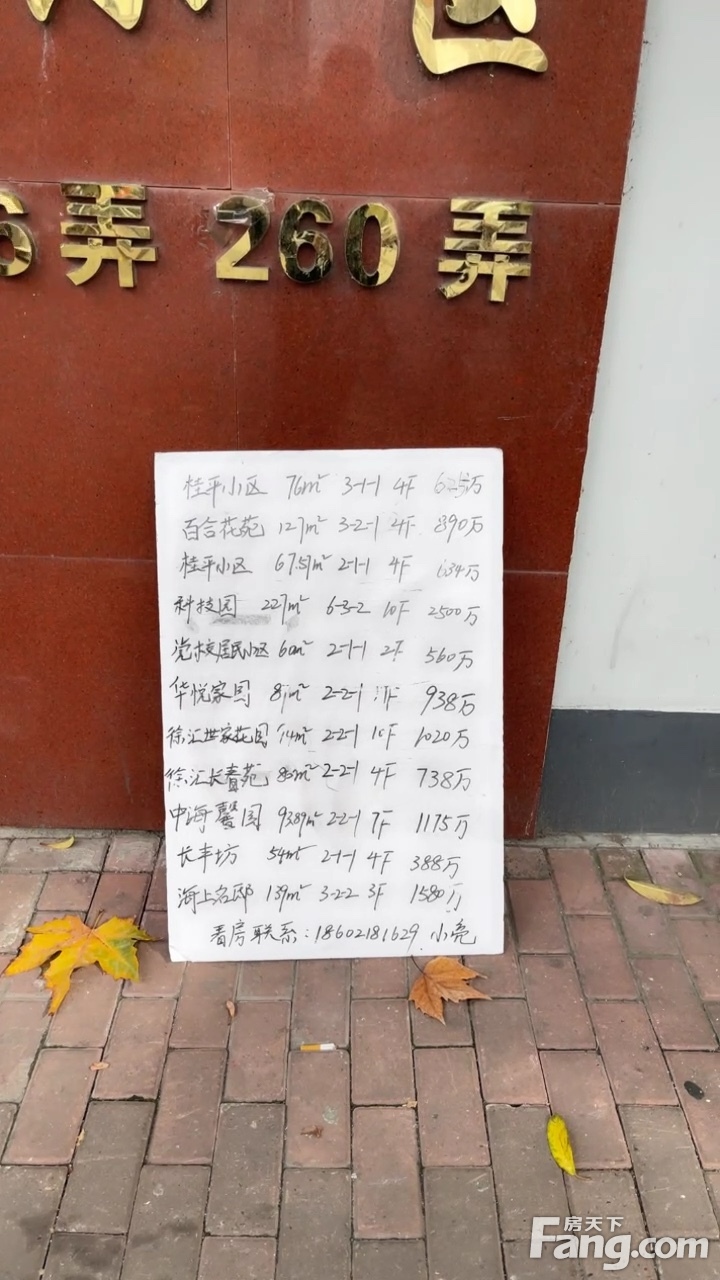 区
6弄 260弄
桂平小区 76m² 3-1-1 4F 625万
百合花苑 127m² 3-2-1 2F 890万
桂平小区 67.57m² 2-1-1 4F 634万
科技园 227m² 6-3-2 10F 2500万
党校居民小区 60m² 2-1-1 2F 560万
华悦家园 2-2-1 938万
徐汇世家花园 2-2-1 1020万
徐汇长春苑 2-2-1 4F 738万
中海馨园 93.89m² 2-2-1 7F 1175万
长丰坊 54m² 2-1-1 4F 388万
海上名邸 139m² 3-2-2 3F 1580万
看房联系:18602181629 小亮
房天下
Fang.com